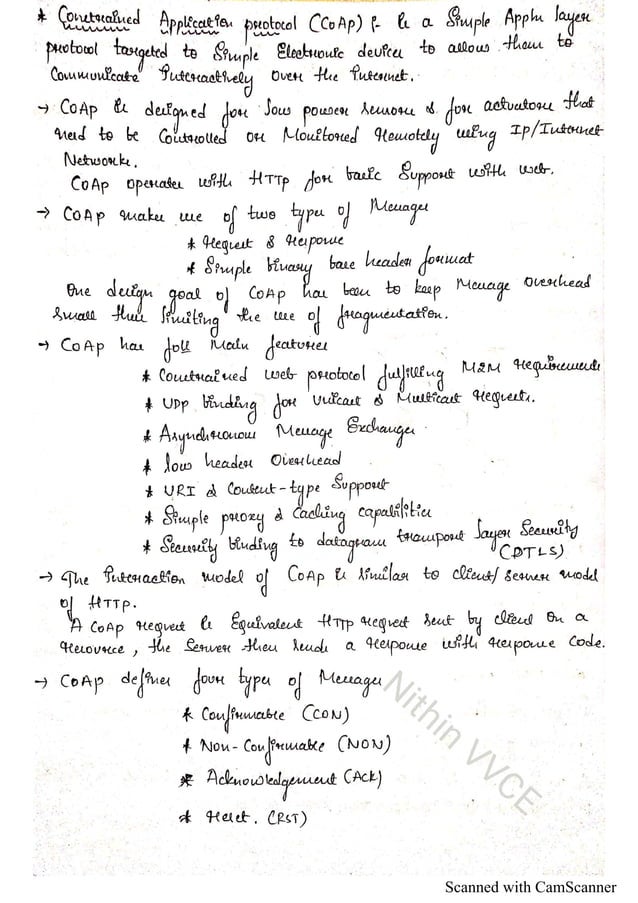 * Constrained Application protocol (CoAp) :- is a Simple Appln layer
protocol targeted to Simple Electronic devices to allows them to
Communicate Interactively over the Internet.
→ CoAp is designed for low power sensors & for actuators that
need to be Controlled or Monitored Remotely using Ip/Internet
Networks.
CoAp operates with HTTp for basic Support with web.
→ CoAp makes use of two types of Messages
* Request & Response
* Simple binary base header format
One design goal of CoAp has been to keep Message Overhead
small thus limiting the use of fragmentation.
→ CoAp has foll Main features
* Constrained web protocol fulfilling M2M Requirements
* UDp binding for Unicast & Multicast Requests.
* Asynchronous Message Exchanges
* low header Overhead
* URI & Content-type Support
* Simple proxy & Caching capabilities
* Security binding to datagram transport layer Security
(DTLS)
→ The Interaction model of CoAp is similar to client/server model
of HTTp.
A CoAp request is Equivalent HTTp request sent by client on a
resource, the Server then sends a response with response Code.
→ CoAp defines four types of Messages
* Confirmable (CON)
* Non-Confirmable (NON)
* Acknowledgement (Ack)
* Reset. (RST)
Nithin VVCE
Scanned with CamScanner